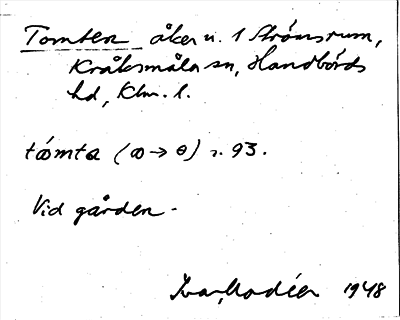 Tomten åker u. 1 Strömsrum,
Kråksmåla sn, Handbörds
hd, Klm. l.
tómta (ω → ɵ) s. 93.
Vid gården.
Ivar Modéer 1948